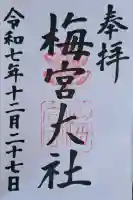 奉拝
梅宮大社
令和七年十二月二十七日